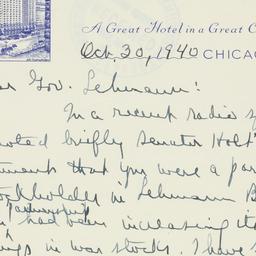 A Great Hotel in a Great C
Oct. 30, 1940 CHICAG
ar Gov. Lehmann:
In a recent radio s
uoted briefly Senator Holt'
ments that you were a par
tockholder in Lehmann B
partnership
had been increasing its
ngs in war stocks. I have s